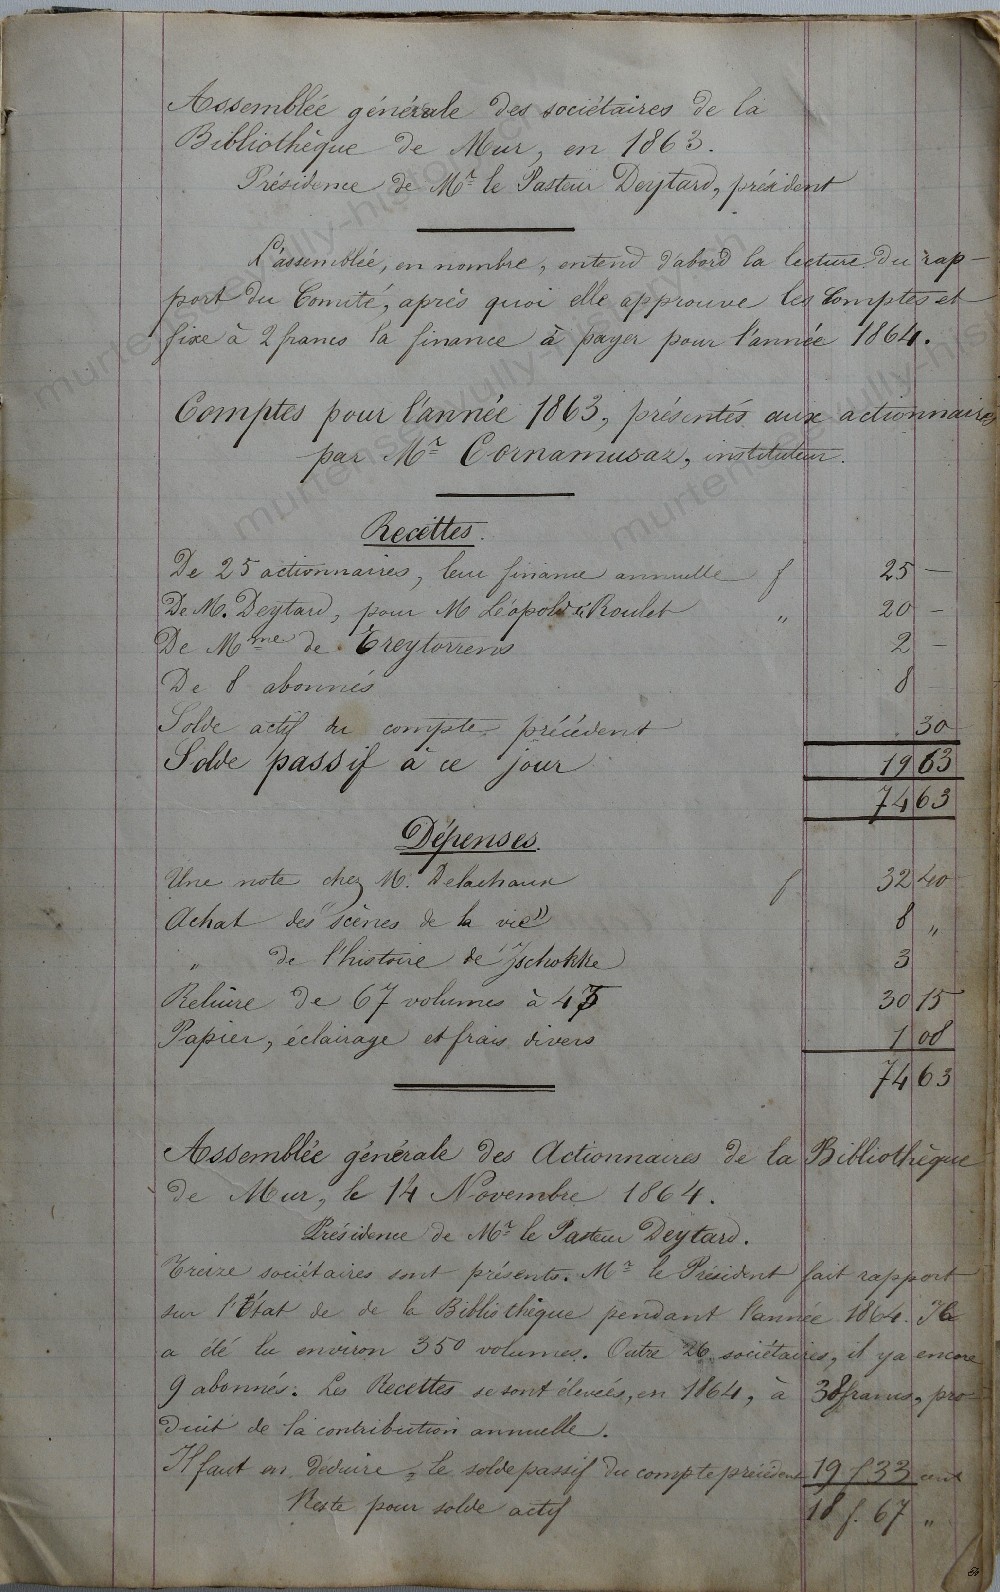 Assemblée générale des sociétaires de la
Bibliothèque de Mur, en 1863.
Présidence de Mr le Pasteur Deytard, président
L'assemblée, en nombre, entend d'abord la lecture du rap-
port du Comité, après quoi elle approuve les Comptes et
fixe à 2 francs la finance à payer pour l'année 1864.
Comptes pour l'année 1863, présentés aux actionnaires
par Mr Cornamusaz, instituteur.
Recettes.
De 25 actionnaires, leur finance annuelle f 25 —
De M. Deytard, pour M Léopold Roulet " 20 —
De Mme de Treytorrens 2 —
De 8 abonnés 8 —
Solde actif du compte précédent . 30
Solde passif à ce jour 19 63
74 63
Dépenses.
Une note chez M. Delachaux f 32 40
Achat des "scènes de la vie" 8 "
" de l'histoire de Zschokke 3
Reliure de 67 volumes à 45 30 15
Papier, éclairage et frais divers 1 08
74 63
Assemblée générale des Actionnaires de la Bibliothèque
de Mur, le 14 Novembre 1864.
Présidence de Mr le Pasteur Deytard.
Treize sociétaires sont présents. Mr le Président fait rapport
sur l'État de de la Bibliothèque pendant l'année 1864. Il
a été lu environ 350 volumes. Outre 26 sociétaires, il y a encore
9 abonnés. Les Recettes se sont élevées, en 1864, à 38 francs, pro-
duit de la contribution annuelle.
Il faut en déduire, le solde passif du compte précédent 19 f. 33 cent
Reste pour solde actif 18 f. 67 "